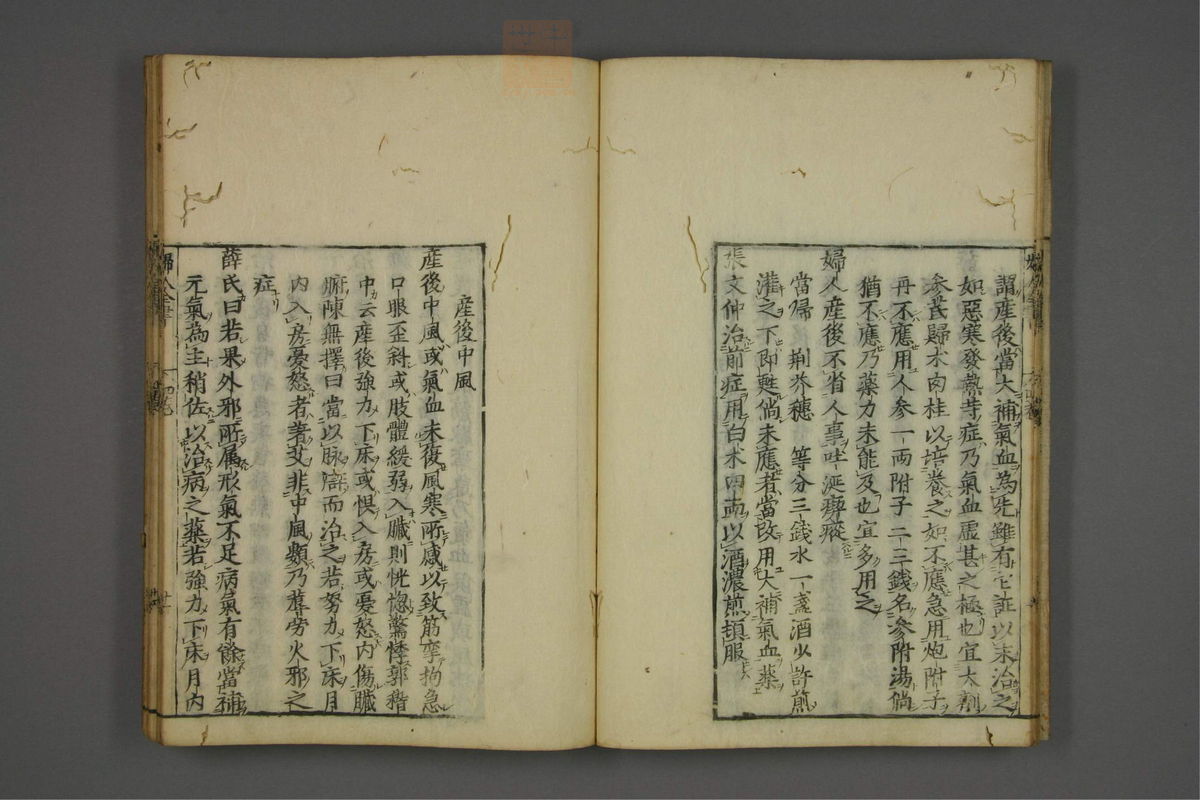 謂產後當大補氣血為先雖有它証以末治之
如惡寒發熱等症乃氣血虛甚之極也宜大劑
參芪歸朮肉桂以培養之如不應急用炮附子
再不應用人參一兩附子二三錢名參附湯倘
猶不應乃藥力未能及也宜多用之
婦人產後不省人事吐涎瘈瘲
當帰 荆芥穗 等分三錢水一盞酒少許煎
灌之下即甦倘未應者當改用大補氣血藥
張文仲治前症用白朮四兩以酒濃煎頓服
產後中風
産後中風或氣血未復風寒所感以致筋攣拘急
口眼歪斜或肢體緩弱入臟則恍惚驚悸郭稽
中云産後強力下床或惧入房或憂怒内傷臟
腑陳無擇曰當以脉辯而治之若努力下床月
内入房憂怒者著艾非中風類乃蓐勞火邪之
症
薛氏曰若果外邪所属形氣不足病氣有餘當補
元氣為主稍佐以治病之藥若強力下床月内
婦人全書